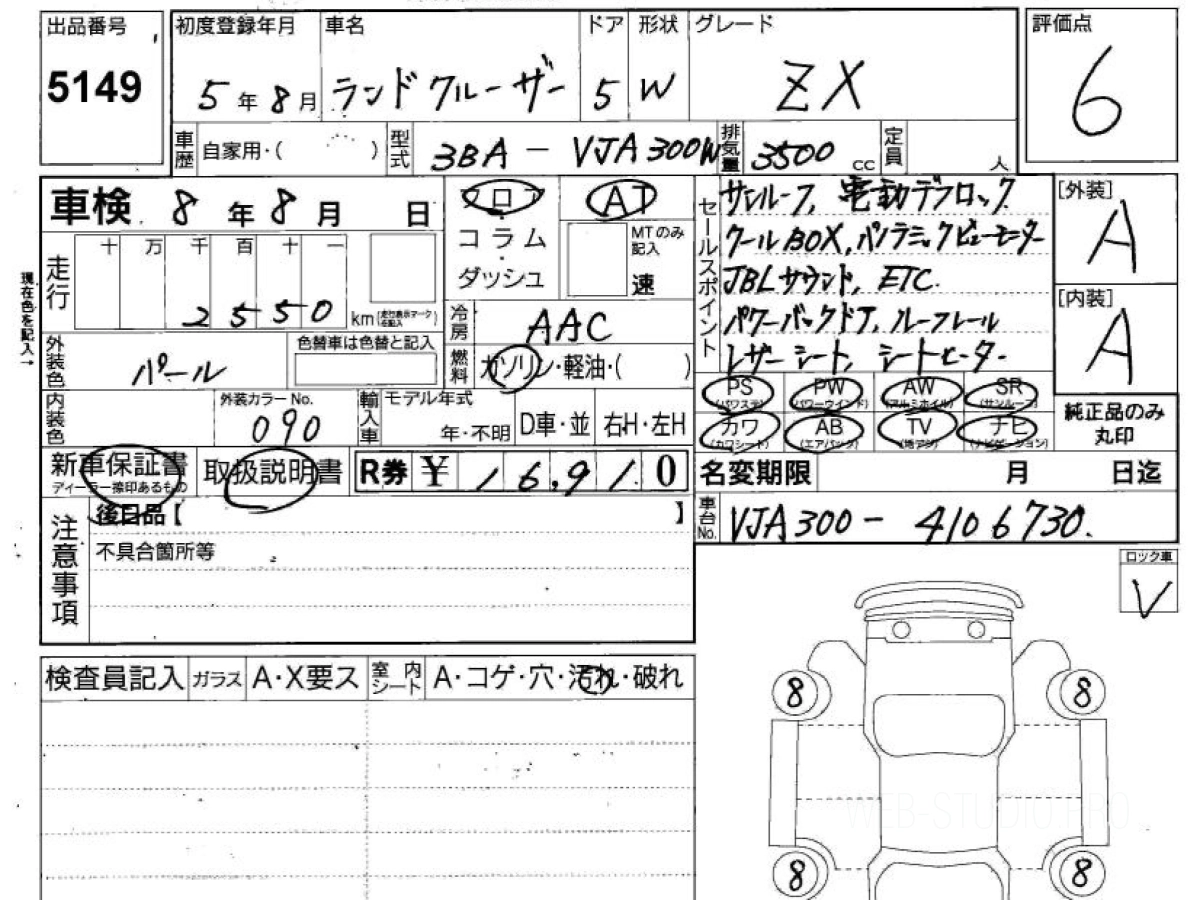 出品番号 初度登録年月 車名 ドア 形状 グレード 評価点
5149 5年8月 ランドクルーザー 5 W ZX 6
車歴 自家用・( ) 型式 3BA-VJA300W 排気量 3500 cc 定員 人
車検 8年8月 日 フロア AT セールスポイント サンルーフ, 電動デフロック [外装] A
コラム MTのみ記入 クールBOX, パノラミックビューモニター
ダッシュ 速 JBLサウンド, ETC.
現在色を記入→ 走行 十 万 千 百 十 一
2550 km (走行表示マーク左記入) 冷房 AAC パワーバックドア, ルーフレール [内装] A
外装色 パール 色替車は色替と記入 燃料 ガソリン・軽油・( ) レザーシート, シートヒーター
PS (パワステ) PW (パワーウインド) AW (アルミホイル) SR (サンルーフ)
内装色 外装カラーNo. 090 輸入車 モデル年式 年・不明 D車・並 右H・左H カワ (カワシート) AB (エアバック) TV (地デジ) ナビ (ナビゲーション) 純正品のみ丸印
新車保証書 ディーラー捺印あるもの 取扱説明書 R券 ¥ 16,910 名変期限 月 日迄
注意事項 後日品【 】 車台No. VJA300-4106730.
不具合箇所等
ロック車
V
検査員記入 ガラス A・X要ス 室内シート A・コゲ・穴・汚れ・破れ
8 8
WEB-STUDIO PRO
8 8